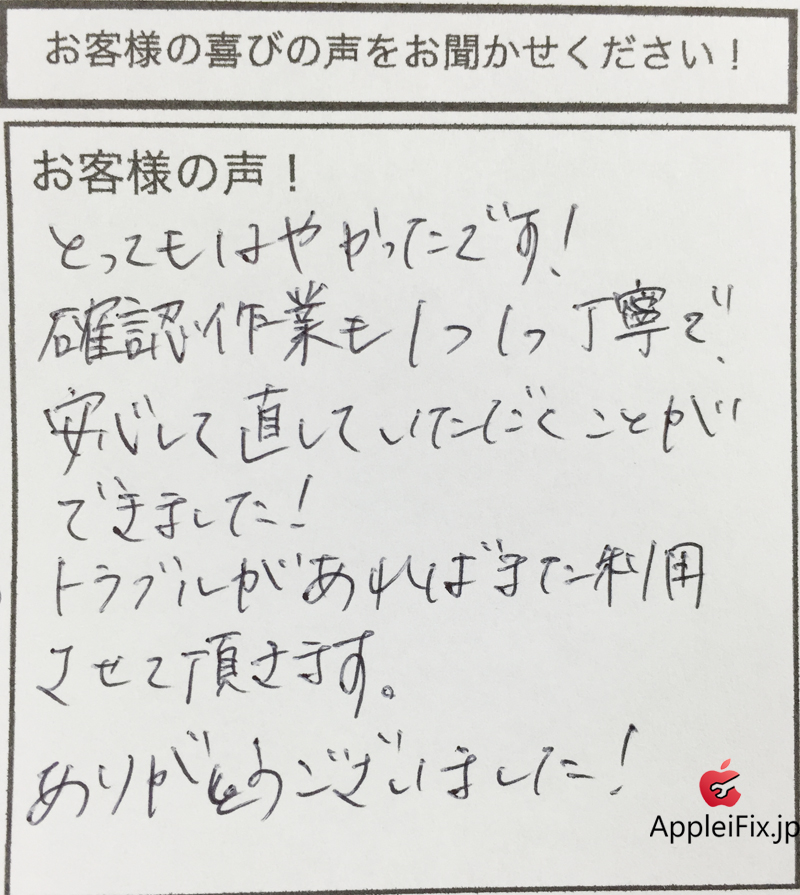 お客様の喜びの声をお聞かせください！
お客様の声！
とってもはやかったです！
確認作業も1つ1つ丁寧で、
安心して直していただくことが
できました！
トラブルがあればまた利用
させて頂きます。
ありがとうございました！
AppleiFix.jp